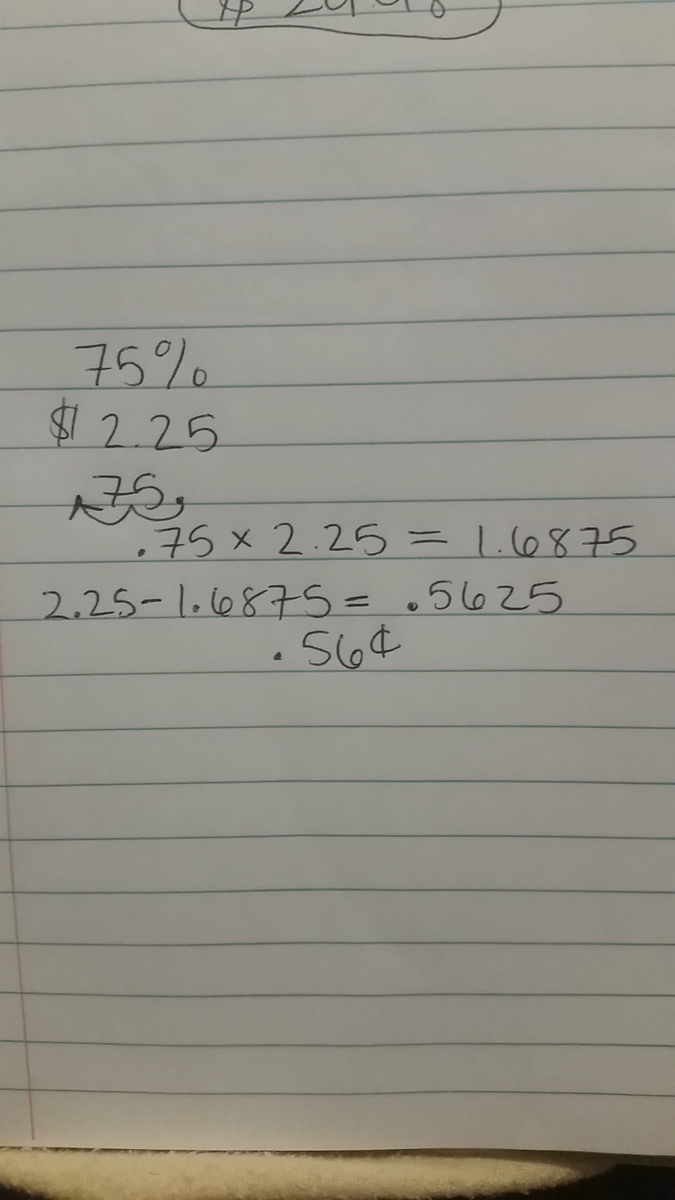 75%
$ 2.25
.75.
.75 x 2.25 = 1.6875
2.25 - 1.6875 = .5625
.56¢